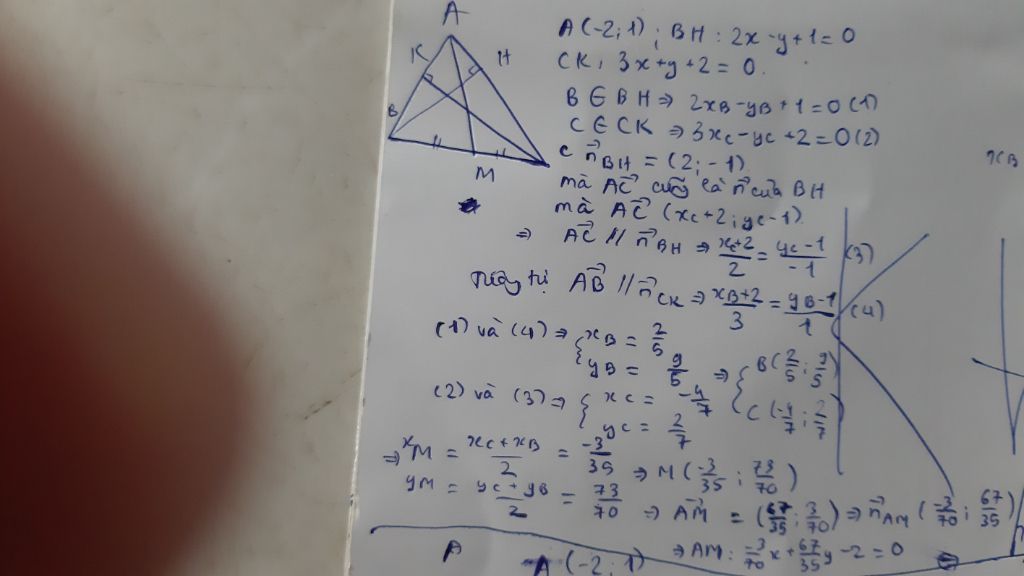 A
K
H
B
M
C
A(-2;1); BH: 2x-y+1=0
CK: 3x+y+2=0.
B∈BH ⇒ 2xB-yB+1=0(1)
C∈CK ⇒ 3xC-yC+2=0(2)
n⃗BH = (2;-1)
mà AC⃗ cũng là n⃗ của BH
mà AC⃗ (xC+2; yC-1)
⇒ AC⃗ // n⃗BH ⇒ xC+2/2 = yC-1/-1 (3)
AB⃗ // n⃗CK ⇒ xB+2/3 = yB-1/1 (4)
(1) và (4) ⇒ { xB = 2/5
yB = 9/5 ⇒ { B(2/5; 9/5)
(2) và (3) ⇒ { xC = -4/7
yC = 2/7
C(-4/7; 2/7)
⇒ xM = xC+xB/2 = -3/35
yM = yC+yB/2 = 73/70 ⇒ M(-3/35; 73/70)
⇒ AM⃗ = (67/35; 3/70) ⇒ n⃗AM (-3/70; 67/35)
⇒ AM: -3/70x+67/35y-2=0
A
A(-2;1)
xB